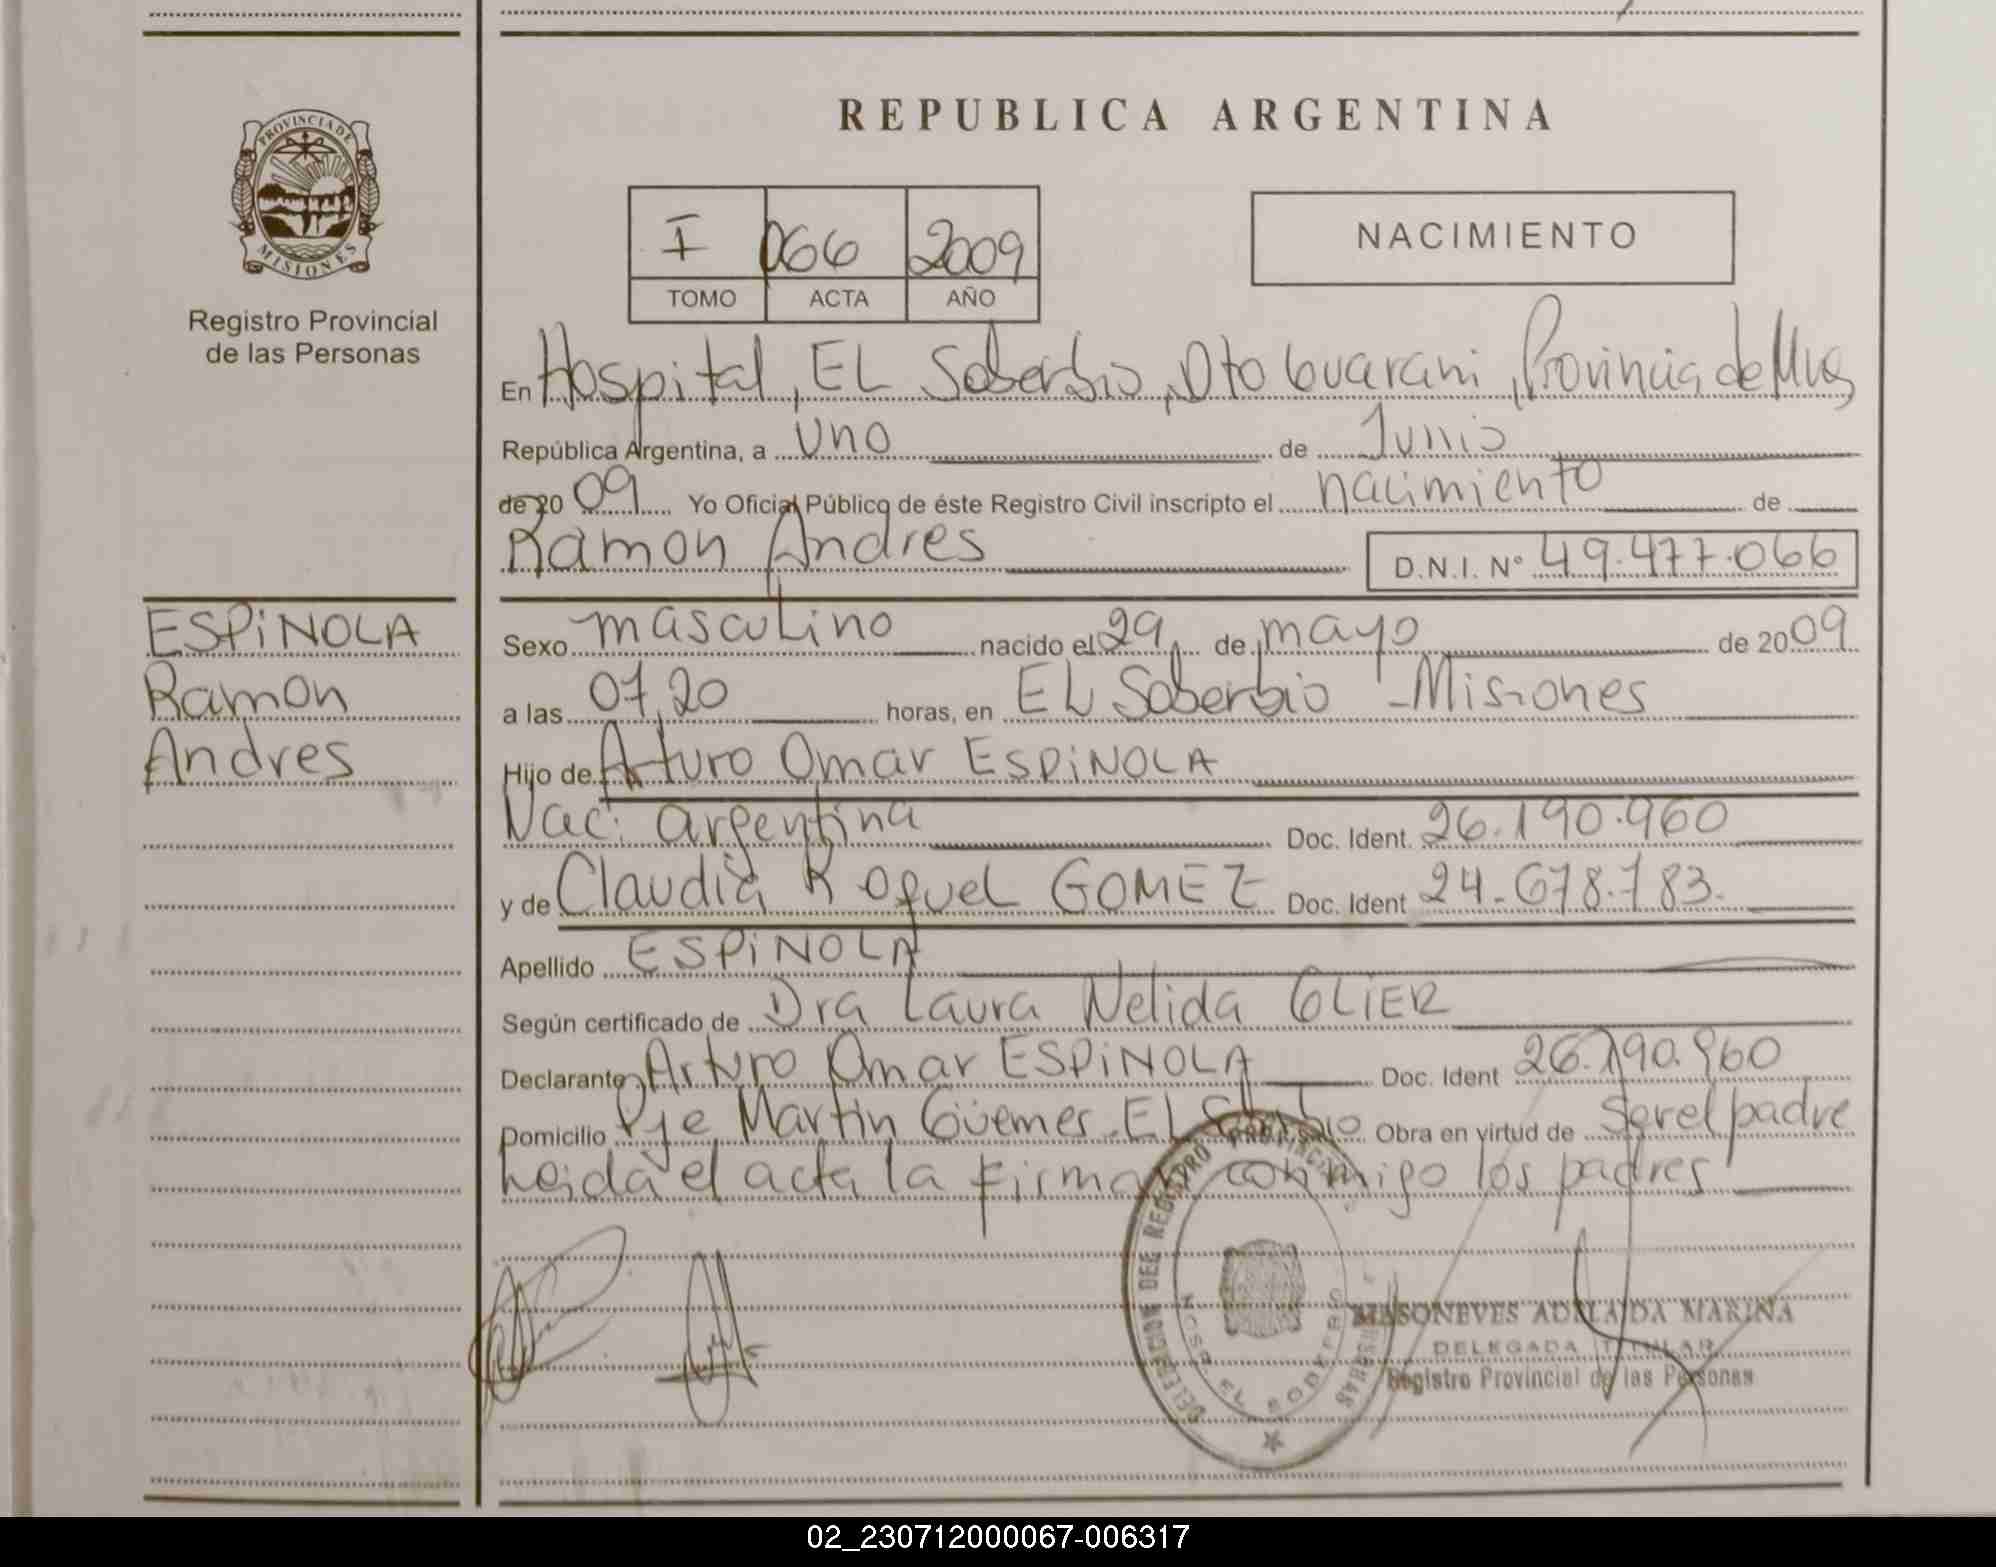 PROVINCIA DE
MISIONES
Registro Provincial
de las Personas
ESPiNOLA
Ramon
Andres
REPUBLICA ARGENTINA
I 066 2009
TOMO ACTA AÑO
NACIMIENTO
En Hospital, EL Soberbio, Dto Guarani, Provincia de Mnes
República Argentina, a uno de Junio
de 20 09 Yo Oficial Público de éste Registro Civil inscripto el nacimiento de
Ramon Andres
D.N.I. N° 49.477.066
Sexo masculino nacido el 29 de mayo de 2009
a las 07,20 horas, en EL Soberbio - Misiones
Hijo de Arturo Omar ESPiNOLA
Nac: argentina Doc. Ident. 26.190.960
y de Claudia Raquel GOMEZ Doc. Ident 24.678.783.
Apellido ESPiNOLA
Según certificado de Dra Laura Nelida GLiER
Declarante Arturo Omar ESPiNOLA Doc. Ident 26.190.960
Domicilio Pje Martin Güemes. EL Soberbio Obra en virtud de ser el padre
Leida el acta la firman conmigo los padres
DELEGACION DEL REGISTRO PROVINCIAL PERSONAS
HOSP. EL SOBERBIO
MASONEVES ADELAIDA MARINA
DELEGADA TITULAR
Registro Provincial de las Personas
02_230712000067-006317